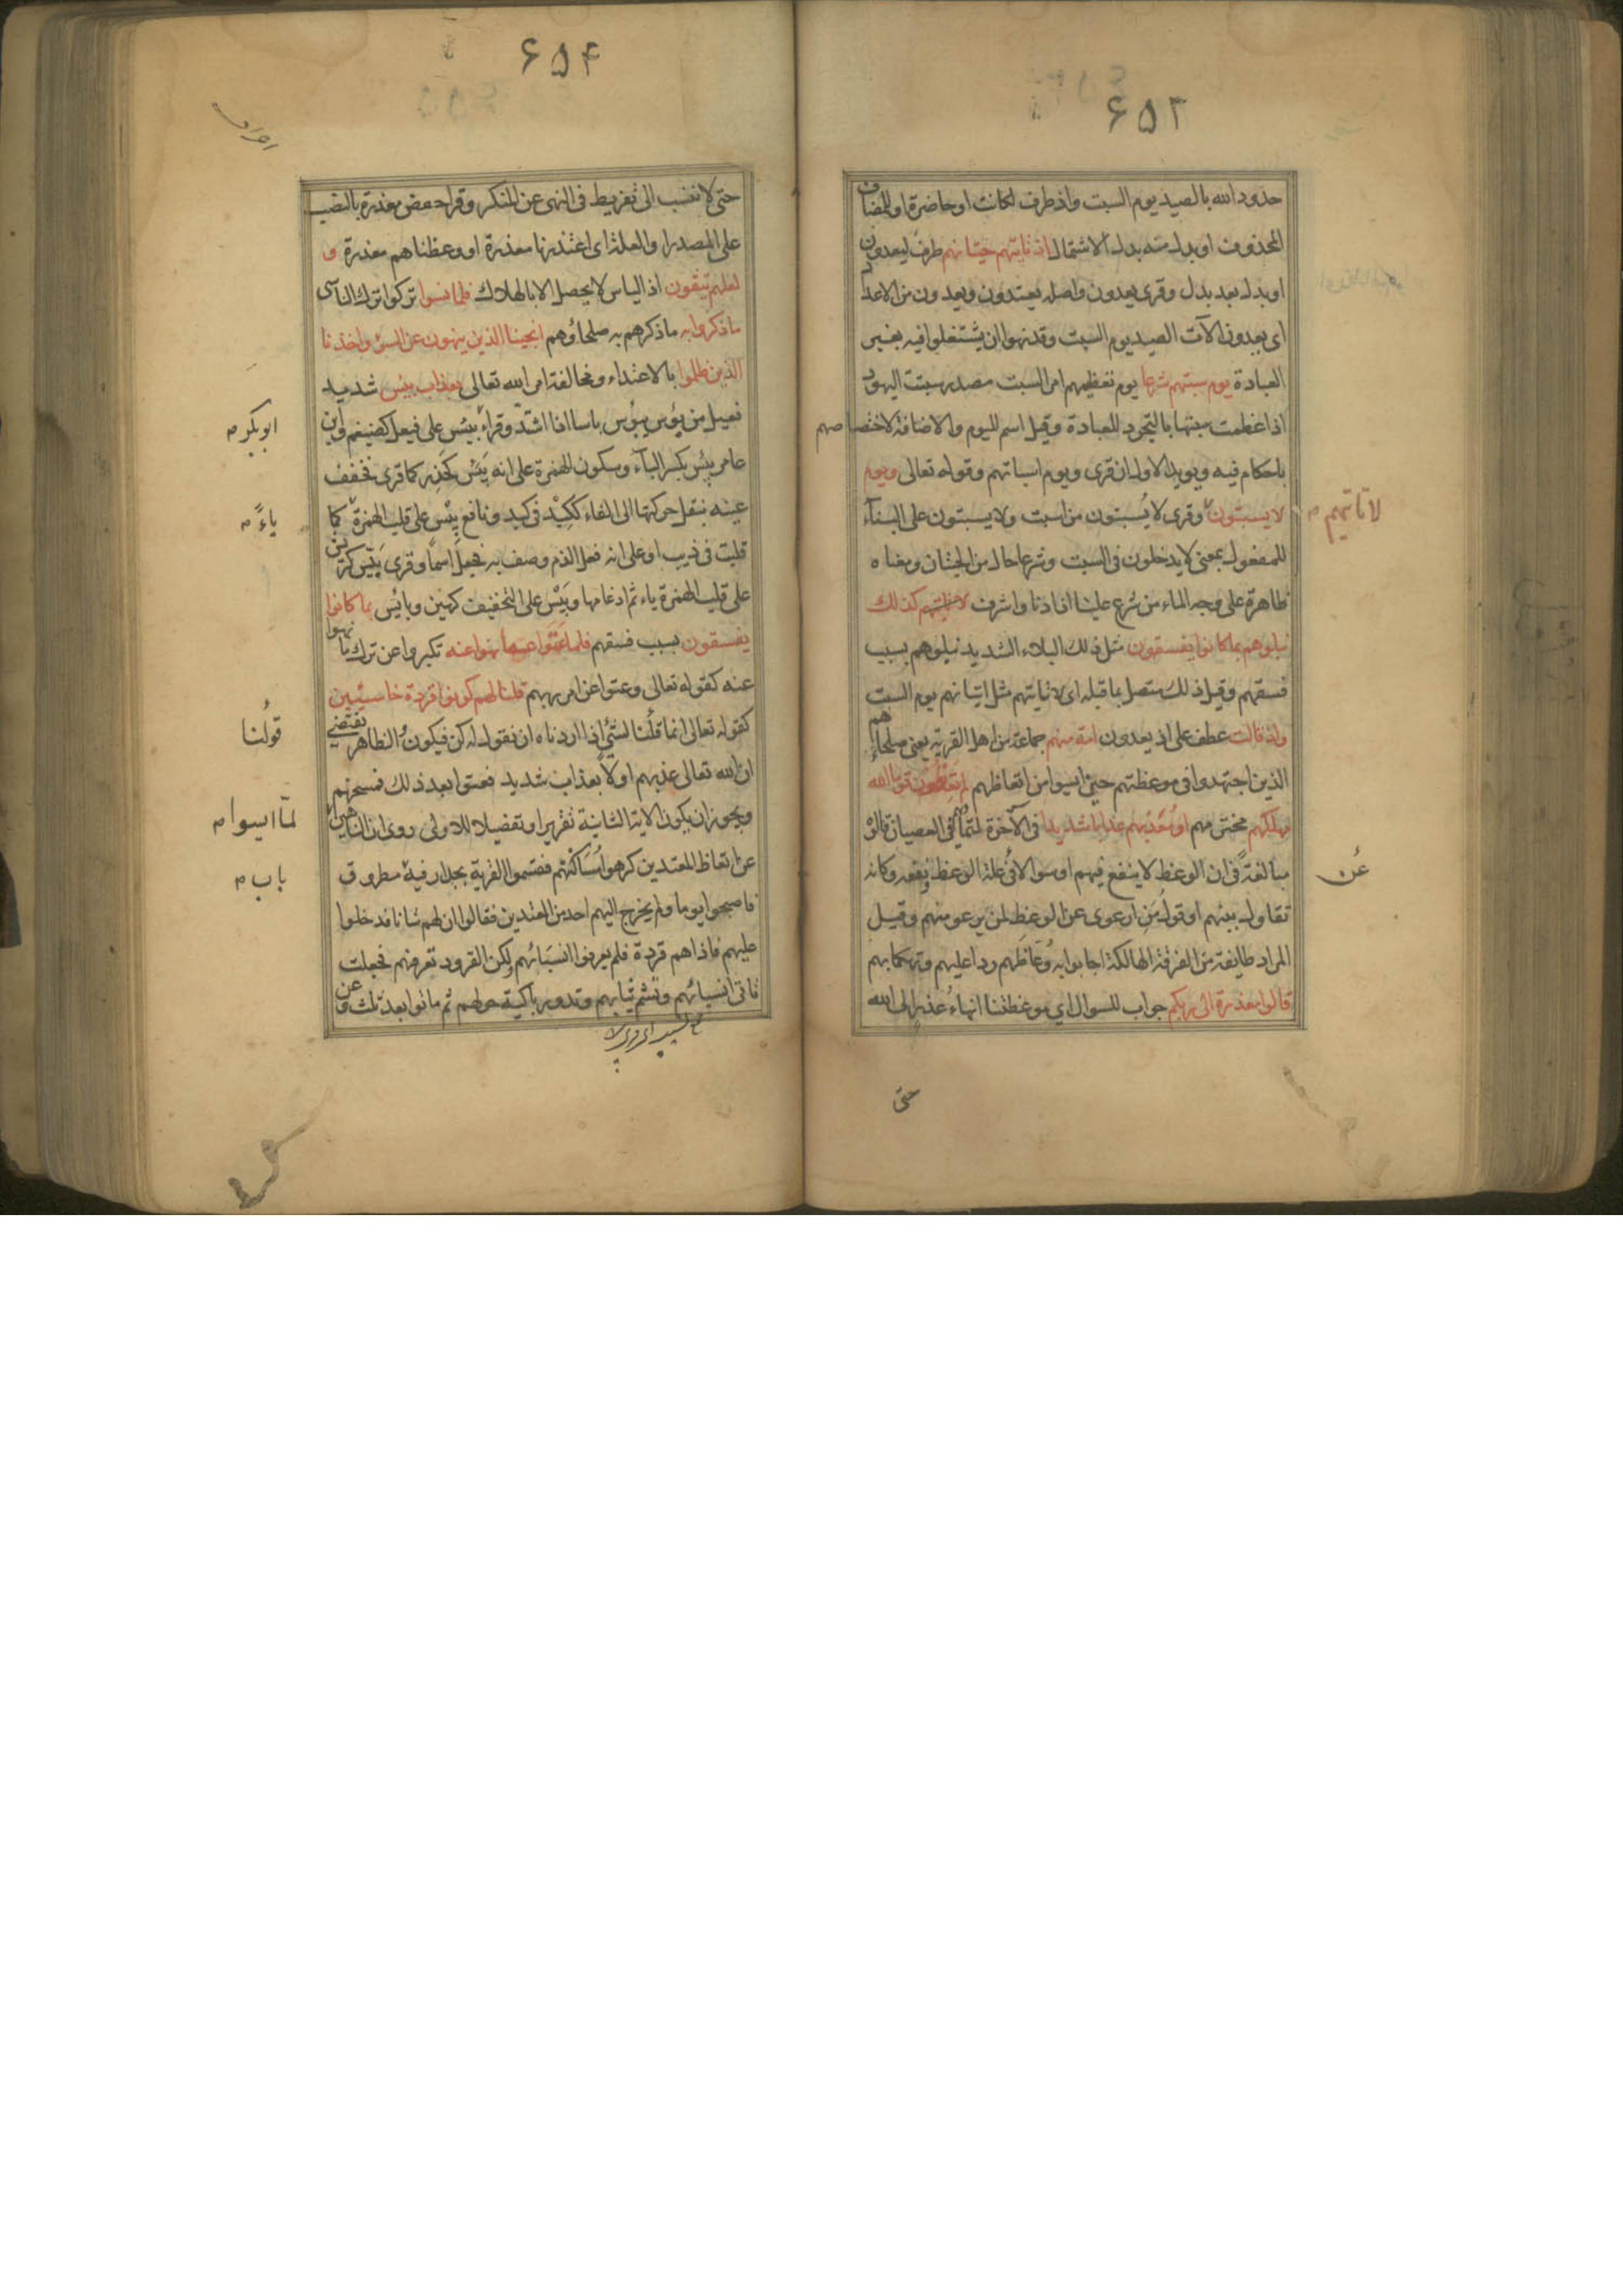 ۶۵۳
حدود الله بالصيد يوم السبت واذ ظرف لكانت او حاضرة او للمضاف
المحذوف او بدل منه بدل الاشتمال اذ تاتيهم حيتانهم ظرف ليعدون
او بدل بعد بدل وقرى يعدون واصله يعتدون ويعدون من الاعداد
اى يعدون الآت الصيد يوم السبت وقد نهوا ان يشتغلوا فيه بغير
العبادة يوم سبتهم شرعا يوم تعظيمهم امر السبت مصدر سبتت اليهود
اذا عظمت سبتها بالتجرد للعبادة وقيل اسم لليوم والاضافة لاختصاصهم
باحكام فيه ويويد الاول ان قرى ويوم اسباتهم وقوله تعالى ويوم
لا يسبتون وقرى لا يُسبتون من اسبت ولا يسبتون على البناء
لا تاتيهم م
للمفعول بمعنى لا يدخلون فى السبت وشرعا حال من الحيتان ومعناه
ظاهرة على وجه الماء من شرع علينا اذا دنا واشرف لا تاتيهم كذلك
نبلوهم بما كانوا يفسقون مثل ذلك البلاء الشديد نبلوهم بسبب
فسقهم وقيل ذلك متصل بما قبله اى لا تاتيهم مثل اتيانهم يوم السبت
واذ قالت عطف على اذ يعدون امة منهم جماعة من اهل القرية يعنى صلحاءهم
الذين اجتهدوا فى موعظتهم حتى ايسوا من اتعاظهم لم تعظون قوما الله
مهلكهم مخترمهم او معذبهم عذابا شديدا فى الآخرة لتماديهم فى العصيان قالوه
مبالغة فى ان الوعظ لا ينفع فيهم او سوالا عن علة الوعظ ونفعه وكانه
عن
تقاول بينهم او قول من ارعوى عن الوعظ لمن يرعو منهم وقيل
المراد طايفة من الفرقة الهالكة اجابوا به وعاظهم ردا عليهم وتهكما بهم
قالوا معذرة الى ربكم جواب للسوال اي موعظتنا انهاء عذر الى الله
حتى
۶۵۴
حتى لا ننسب الى تفريط فى النهى عن المنكر وقرا حفص معذرة بالنصب
على المصدر او العلة اى اعتذرنا معذرة او وعظناهم معذرة و
لعلهم يتقون اذ الياس لا يحصل الا بالهلاك فلما نسوا تركوا ترك الناسى
ما ذكروا به ما ذكرهم به صلحاؤهم انجينا الذين ينهون عن السوء واخذنا
الذين ظلموا بالاعتداء ومخالفة امر الله تعالى بعذاب بئيس شديد
فعيل من بؤس يبؤس باسا اذا اشتد وقرا بيئس على فيعل كضيغم وابن
ابو بكر م
عامر بئس بكسر الباء وسكون الهمزة على انه بَئس كحذر كما قرى فخفف
عينه بنقل حركتها الى الفاء ككبد فى كبد ونافع بيس على قلب الهمزة كما
ياءً م
قلبت فى ذيب او على انه فعل الذم وصف به فجعل اسما وقرى بيّس كريّس
على قلب الهمزة ياء ثم ادغامها وبَيْس على التخفيف كهين وبائس بما كانوا
يفسقون بسبب فسقهم فلما عتوا عما نهوا عنه تكبروا عن ترك ما نهوا
عنه كقوله تعالى وعتوا عن امر ربهم قلنا لهم كونوا قردة خاسئين
كقوله تعالى انما قلنا لشئ اذا اردناه ان نقول له كن فيكون والظاهر يقتضى
قولنا
ان الله تعالى عذبهم اولا بعذاب شديد فعتوا بعد ذلك فمسخهم
ويجوز ان يكون الاية الثانية تقريرا وتفصيلا للاولى روى ان الناهين
لمّا ايسوا م
عن اتعاظ المعتدين كرهوا مساكنتهم فقسموا القرية بجدار فيه مطروق
باب م
فاصبحوا يوما ولم يخرج اليهم احد من المعتدين فقالوا ان لهم شانا فدخلوا
عليهم فاذا هم قردة فلم يعرفوا انسباءهم ولكن القرود تعرفهم فجعلت
تاتى انسبائهم وتشم ثيابهم وتدور باكية حولهم ثم ماتوا بعد ثلث وعن